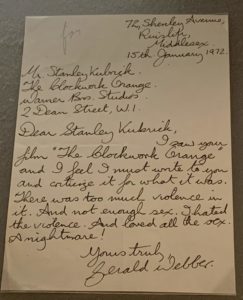 72, Shenley Avenue,
Ruislip,
Middlesex
15th January 1972.
Mr. Stanley Kubrick
"The Clockwork Orange
Warner Bros. Studios
2 Dean Street, W.1.
Dear Stanley Kubrick,
I saw your
film "The Clockwork Orange
and I feel I must write to you
and for what it was.
There was too much violence in
it. And not enough sex. I hated
the violence. And loved all the sex.
A nightmare!
Yours truly
Gerald Webber.